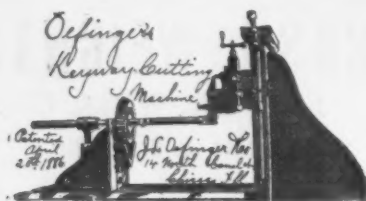 Oefinger's
Keyway Cutting
Machine
Patented
April
20th 1886
J. L. Oefinger
14 North Canal St
Chicago Ill